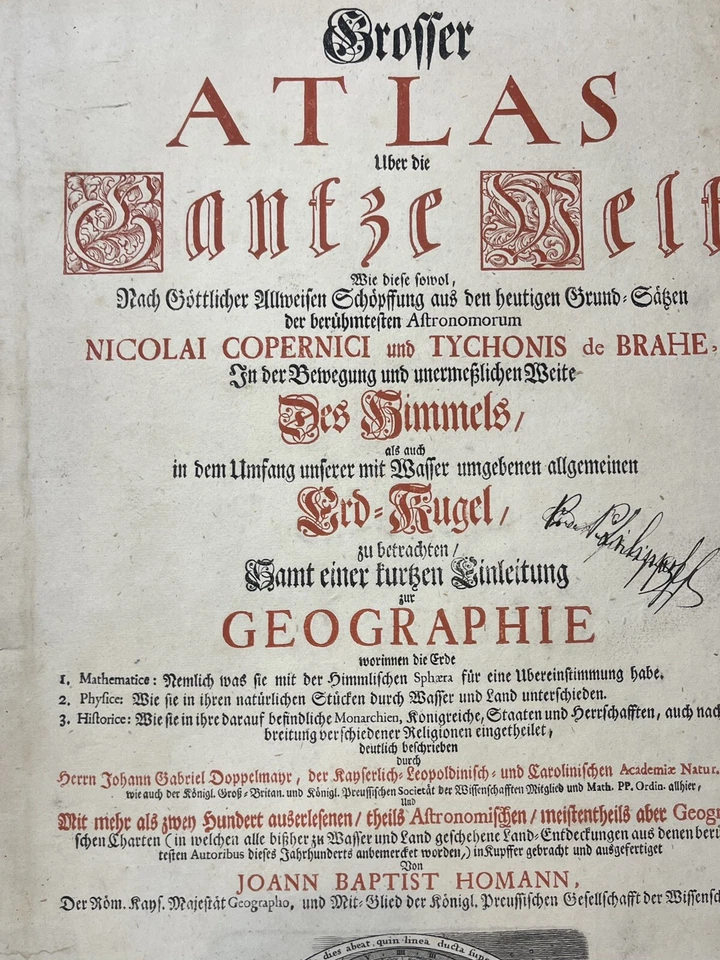 Grosser
ATLAS
Uber die
Gantze Welt
Wie diese sowol,
Nach Göttlicher Allweisen Schöpffung aus den heutigen Grund-Sätzen
der berühmtesten Astronomorum
NICOLAI COPERNICI und TYCHONIS de BRAHE,
In der Bewegung und unermeßlichen Weite
Des Himmels,
als auch
in dem Umfang unserer mit Wasser umgebenen allgemeinen
Erd-Kugel,
zu betrachten,
Samt einer kurtzen Einleitung
zur
GEOGRAPHIE
worinnen die Erde
1. Mathematice: Nemlich was sie mit der Himmlischen Sphæra für eine Ubereinstimmung habe.
2. Physice: Wie sie in ihren natürlichen Stücken durch Wasser und Land unterschieden.
3. Historice: Wie sie in ihre darauf befindliche Monarchien, Königreiche, Staaten und Herrschafften, auch nach
breitung verschiedener Religionen eingetheilet,
deutlich beschrieben
durch
Herrn Johann Gabriel Doppelmayr, der Kayserlich-Leopoldinisch- und Carolinischen Academiæ Natur.
wie auch der Königl. Groß-Britan. und Königl. Preussischen Societät der Wissenschafften Mitglied und Math. PP. Ordin. allhier,
Und
Mit mehr als zwey Hundert auserlesenen / theils Astronomischen / meistentheils aber Geogr
schen Charten (in welchen alle bißher zu Wasser und Land geschehene Land-Entdeckungen aus denen berü
testen Autoribus dieses Jahrhunderts anbemercket worden,) in Kupffer gebracht und ausgefertiget
Von
JOANN BAPTIST HOMANN,
Der Röm. Kays. Majestät Geographo, und Mit-Glied der Königl. Preussischen Gesellschafft der Wissensch
dies abeat, quin linea ducta supe